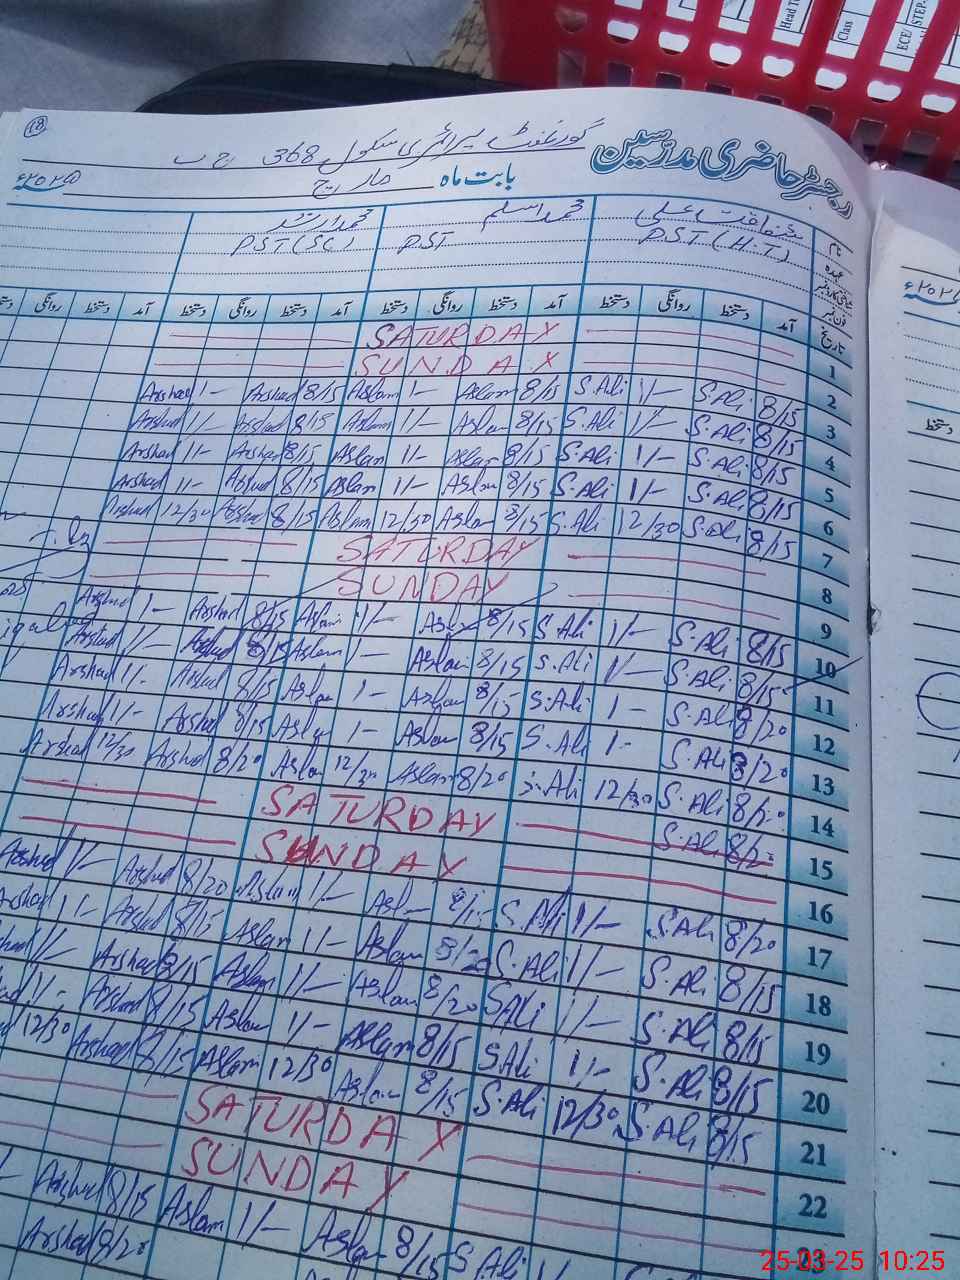 Head T
Class
ECE/
STEP-
18
رجسٹر حاضری مدرسین
گورنمنٹ پرائمری سکول 368 ج ب
بابت ماہ مارچ ۲۰۲۵ء
نام محمد اسلم محمد ارشد
عہدہ P.S.T (H.T) PST PST (SC)
تاریخ آمد دستخط روانگی دستخط آمد دستخط روانگی دستخط آمد دستخط روانگی دستخط آمد دستخط روانگی
1 SATURDAY
2 SUNDAY
3 8/15 S.Ali 1/- S.Ali 8/15 Aslam 1- Aslam 8/15 Arshad 1- Arshad
4 8/15 S.Ali 1/- S.Ali 8/15 Aslam 1/- Aslam 8/15 Arshad 1/- Arshad
5 8/15 S.Ali 1/- S.Ali 8/15 Aslam 1/- Aslam 8/15 Arshad 1/- Arshad
6 8/15 S.Ali 1/- S.Ali 8/15 Aslam 1/- Aslam 8/15 Arshad 1/- Arshad
7 8/15 S.Ali 12/30 S.Ali 8/15 Aslam 12/30 Aslam 8/15 Arshad 12/30 Arshad
8 SATURDAY
9 SUNDAY
10 8/15 S.Ali 1/- S.Ali 8/15 Aslam 1/- Aslam 8/15 Arshad 1- Arshad
11 8/15 S.Ali 1/- S.Ali 8/15 Aslam 1- Aslam 8/15 Arshad 1/- Arshad
12 8/20 S.Ali 1- S.Ali 8/15 Aslam 1- Aslam 8/15 Arshad 1/- Arshad
13 8/20 S.Ali 1- S.Ali 8/15 Aslam 1- Aslam 8/15 Arshad 1/- Arshad
14 8/20 S.Ali 12/30 S.Ali 8/20 Aslam 12/30 Aslam 8/20 Arshad 12/30 Arshad
15 8/20 S.Ali SATURDAY
16 SUNDAY
17 8/20 S.Ali 1/- S.Ali 8/15 Aslam 1/- Aslam 8/20 Arshad 1/- Arshad
18 8/15 S.Ali 1/- S.Ali 8/20 Aslam 1/- Aslam 8/15 Arshad 1- Arshad
19 8/15 S.Ali 1/- S.Ali 8/20 Aslam 1/- Aslam 8/15 Arshad 1/-
20 8/15 S.Ali 1/- S.Ali 8/15 Aslam 1/- Aslam 8/15 Arshad 1/-
21 8/15 S.Ali 12/30 S.Ali 8/15 Aslam 12/30 Aslam 8/15 Arshad 12/30
22 SATURDAY
SUNDAY
S.Ali 8/15 Aslam 1/- Aslam 8/15 Arshad
8/20 Arshad
دستخط
25-03-25 10:25